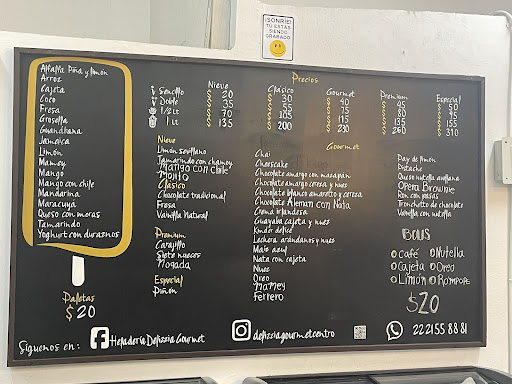 ¡SONRIE!
TÚ ESTÁS
SIENDO
GRABADO
Alfalfa Piña y limón
Arroz
Cajeta
Coco
Fresa
Grosella
Guanabana
Jamaica
Limón
Mamey
Mango
Mango con chile
Mandarina
Maracuyá
Queso con moras
Tamarindo
Yoghurt con duraznos
Paletas
$20
Precios
Nieve Clásico Gourmet Premium Especial
Sencillo $20 $30 $40 $45 $50
Doble $35 $55 $75 $80 $95
1/2 Lt $70 $105 $115 $135 $155
1 Lt $135 $200 $230 $260 $310
Nieve
Limón sevillano
Tamarindo con chamoy
Mango con chile
Mojito
Clásico
Chocolate tradicional
Fresa
Vainilla Natural
Premium
Carajillo
Siete nueces
Mogada
Especial
Piñon
Gourmet
Chai
Cheescake
Chocolate amargo con mazapán
Chocolate amargo cereza y nuez
Chocolate blanco amaretto y cereza
Chocolate Aleman con Nata
Crema irlandesa
Guayaba cajeta y nuez
Kinder delice
Lechera arándanos y nuez
Maíz azul
Nata con cajeta
Nuez
Oreo
Mamey
Ferrero
Pay de limón
Pistache
Queso nutella avellana
Opera Brownie
Ron con pasas
Tronchetto de chocolate
Vainilla con nutella
Bolis
Café Nutella
Cajeta Oreo
Limón Rompope
$20
Síguenos en: Heladería Delizzia Gourmet delizziagourmetcentro 222155 88 81